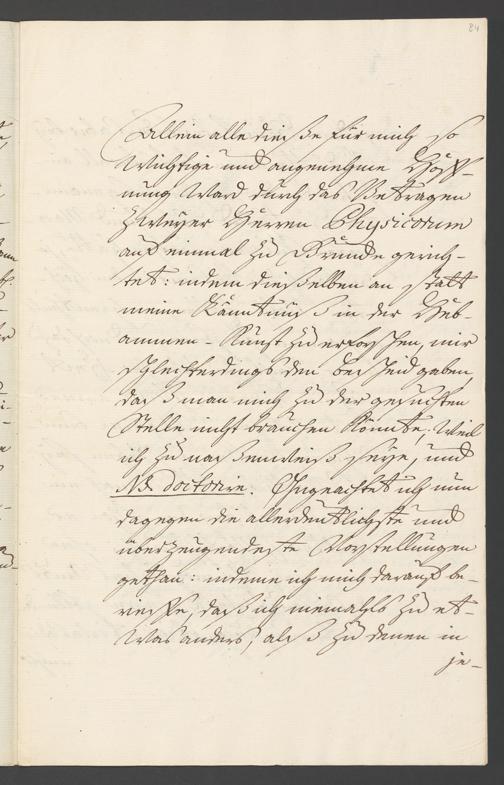 84
Allein alle dießse für mich so
Wichtige und angenehme Hoff-
nung Ward durch das Betragen
Zweyer Herren Physicorum
auf einmal zu Grunde gerich-
tet: indem dießelben an statt
meine Känntnuß in der Heb-
ammen-Kunst zu erforschen, mir
schlechterdings den Bescheid gaben,
daß man mich zu der gesuchten
Stelle nicht brauchen könnte, Weil
ich zu naßenweiß seye, und
NB. doctorin. Ohngeachtet ich nun
dagegen die allerdeutlichste und
überzeugendeste Vorstellungen
gethan: indeme ich mich darauf be-
rieffe, daß ich niemahls zu et-
Was anders, alß zu denen in
je-